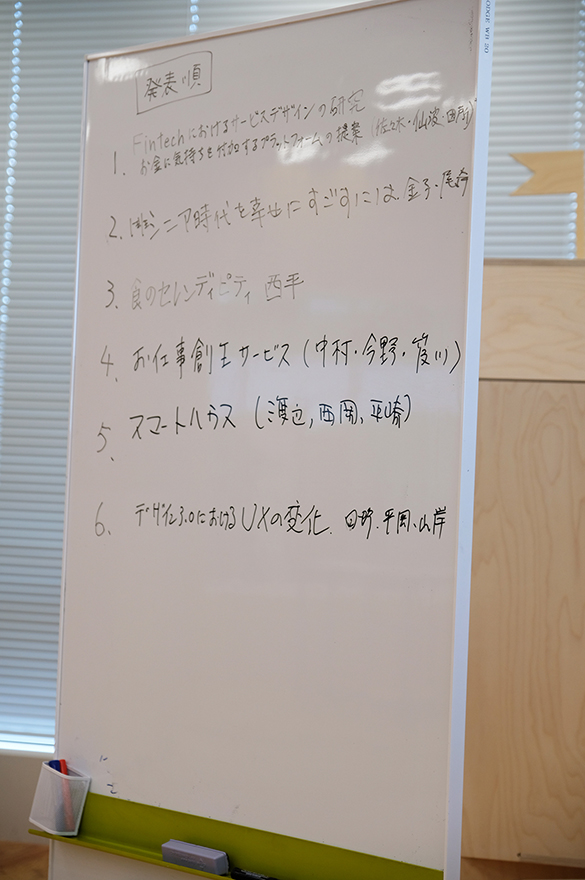 発表順
1. Fintechにおけるサービスデザインの研究
お金に気持ちを付加するプラットフォームの提案 (佐々木・仙波・西
2. シニア時代を幸せにすごすには 金子・尾
3. 食のセレンディピティ 西平
4. お仕事創生サービス (中村・今野・笈川)
5. スマートハウス (渡辺, 西岡, 平崎)
6. デザイン3.0におけるUXの変化. 田 . 平岡、山岸
WB 20